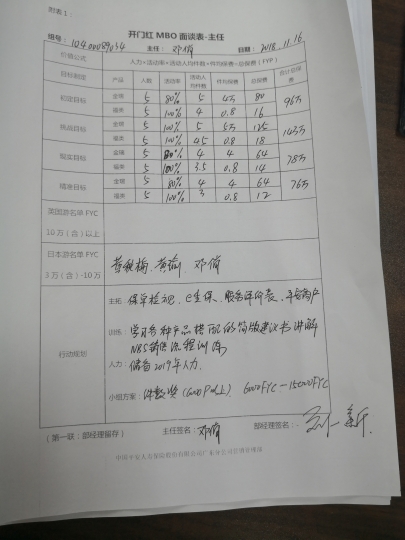 附表1：
开门红 MBO 面谈表-主任
组号： 主任：邓俏 日期：2018.11.16
价值公式 人力*活动率*活动人均件数*件均保费=总保费（FYP）
目标制定 产品 人数 活动率 活动人均件数 件均保费 总保费 合计总保费
初定目标 金瑞 5 80% 5 4万 80 96万
福类 5 100% 4 0.8 16
挑战目标 金瑞 5 100% 5 5万 125 143万
福类 5 100% 4.5 0.8 18
现实目标 金瑞 5 80% 4 4 64 78万
福类 5 100% 3.5 0.8 14
精准目标 金瑞 5 80% 4 4 64 76万
福类 5 100% 3 0.8 12
英国游名单 FYC
10 万（含）以上
日本游名单 FYC
3 万（含）-10 万
邓俏
行动规划
主拓 保单检视、e生保、服务评价表、平安商户
训练： 学习各种产品搭配的简版建议书讲解
NBS销售流程训练
人力： 储备2019年人力.
小组方案： 件数奖 6000FYC－15000FYC
（第一联：部经理留存） 主任签名：邓俏 部经理签名：
中国平安人寿保险股份有限公司广东分公司营销管理部